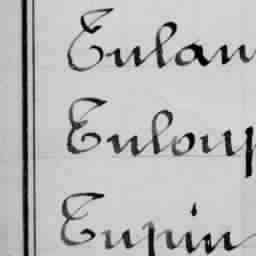 Tulan
Tuloup
Tupin